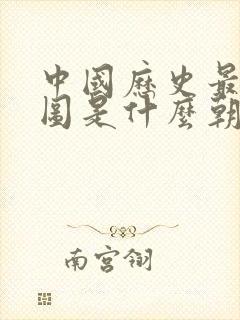 中國歷史最
圖是什麼朝
南宮翎